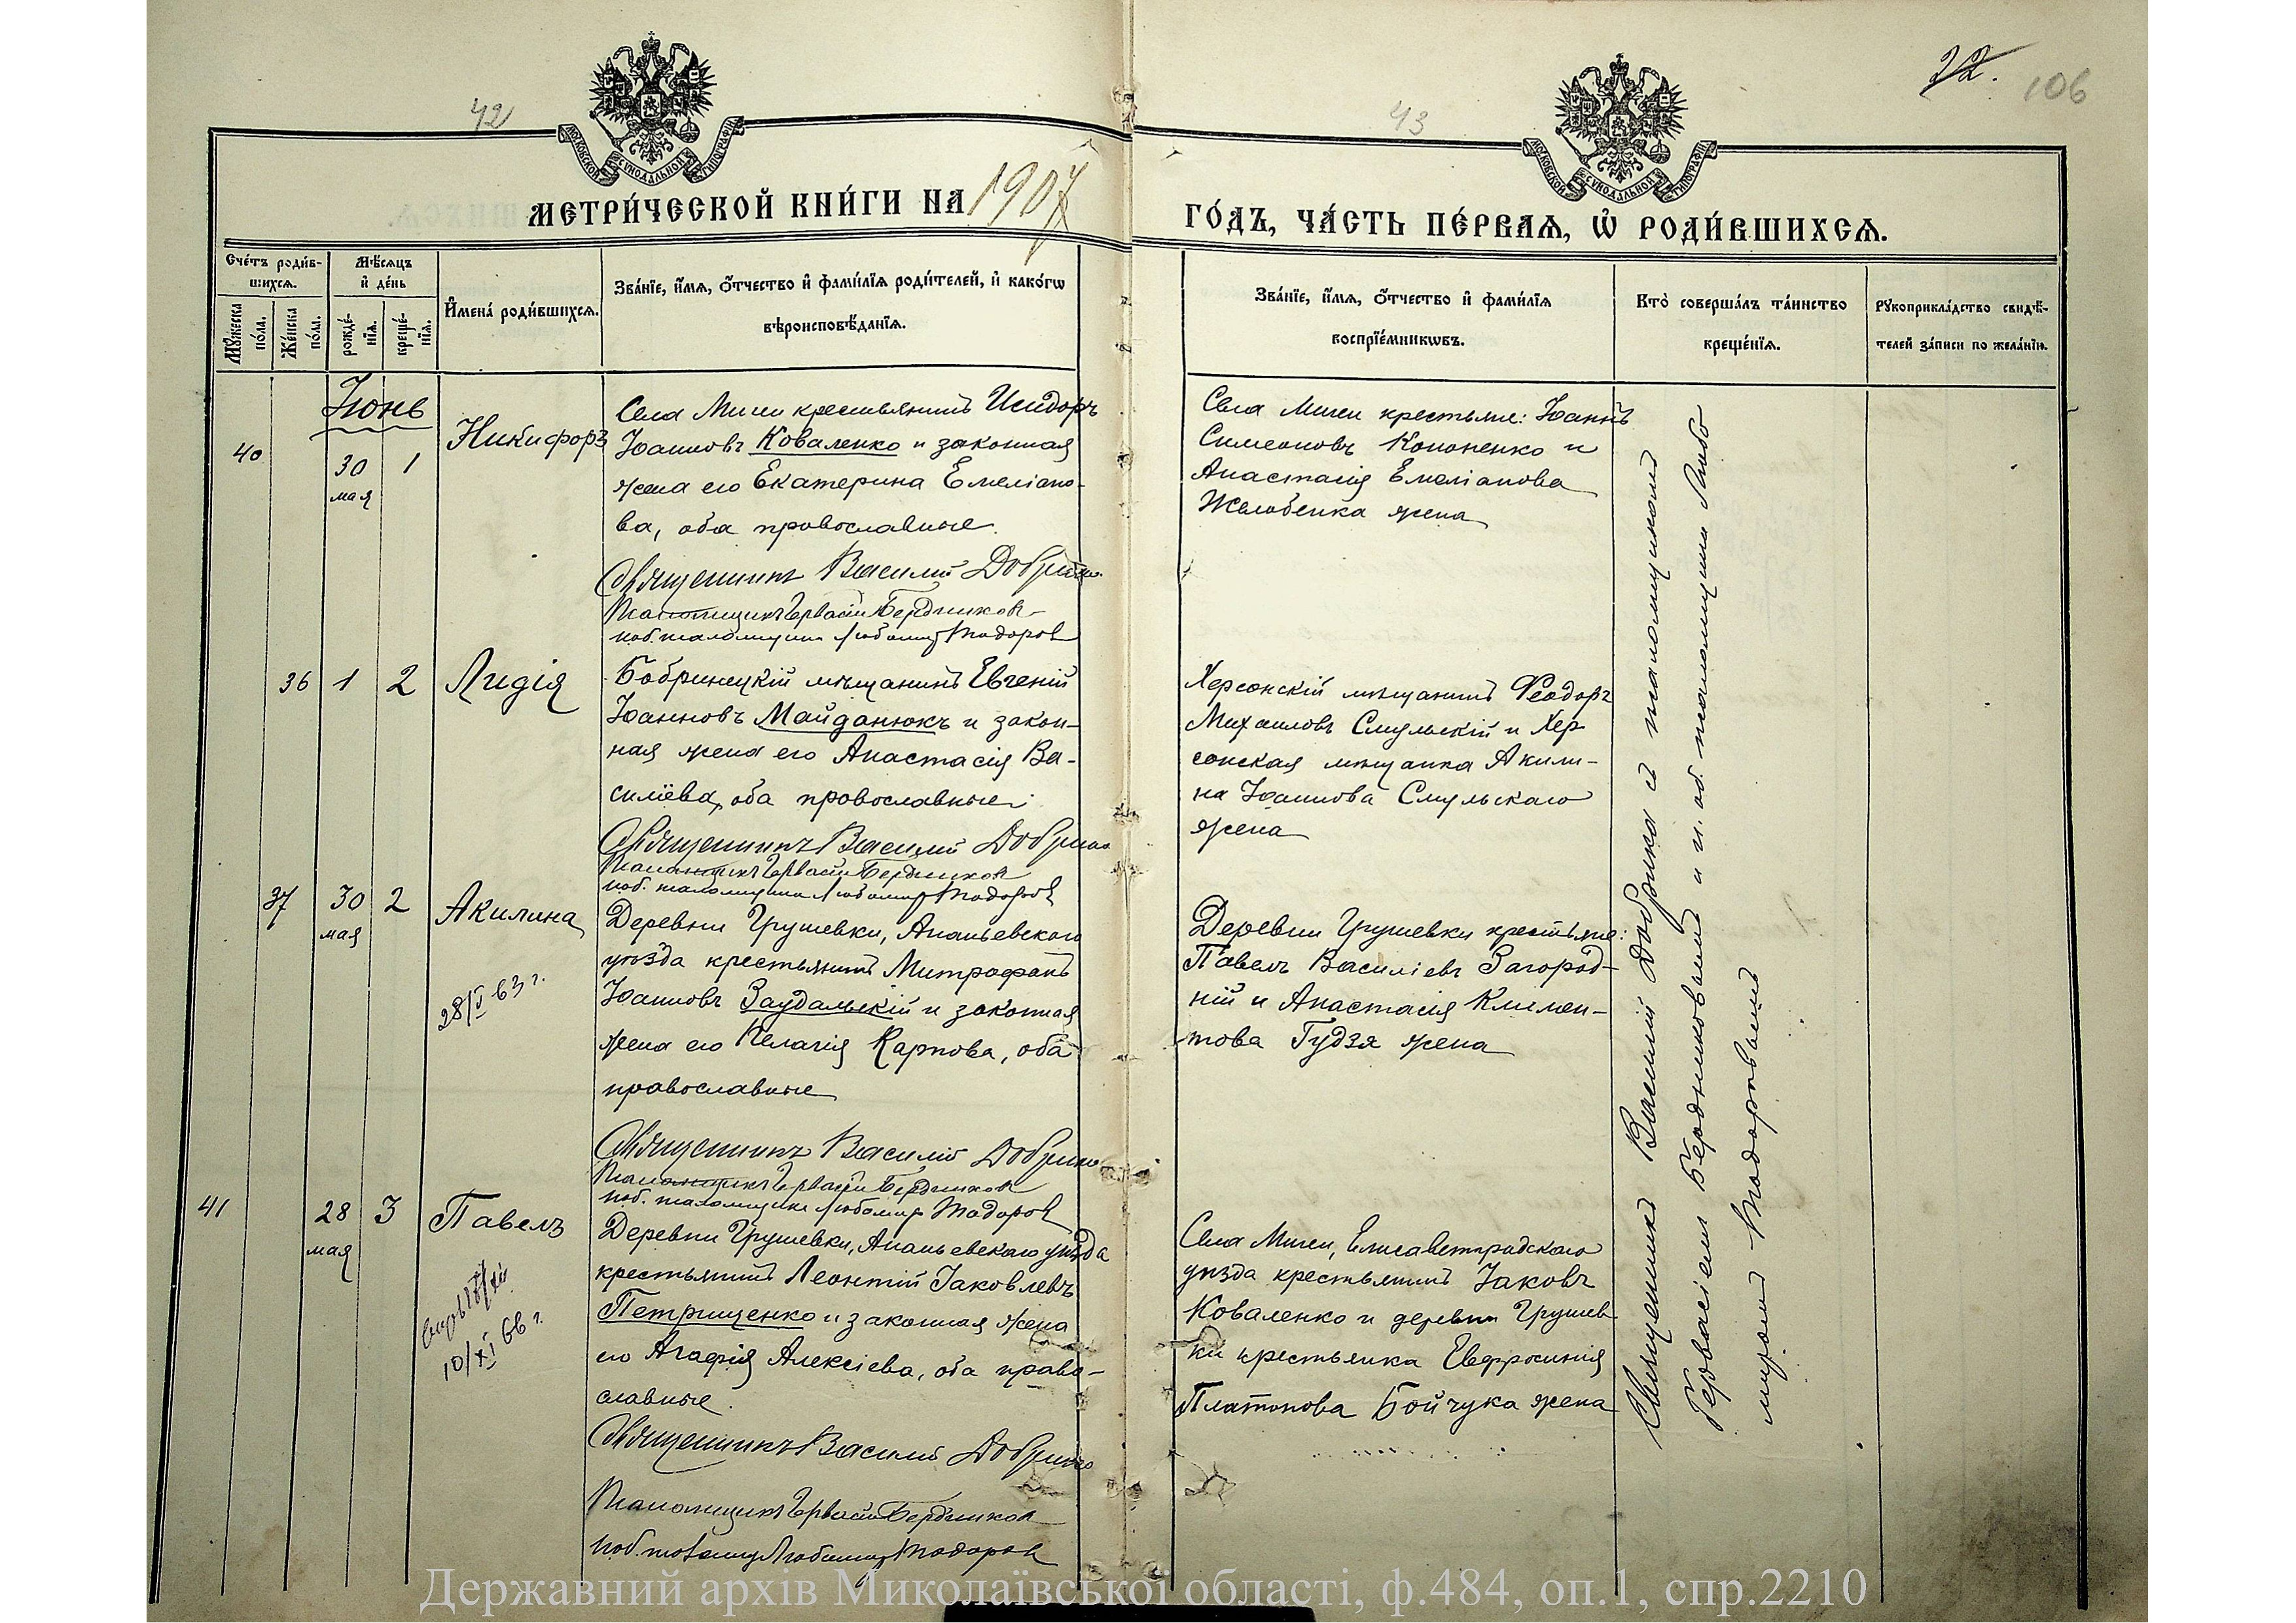 42
43
22.
106
МОСКОВСКОЙ СѴНОДАЛЬНОЙ ТИПОГРАФІИ
МОСКОВСКОЙ СѴНОДАЛЬНОЙ ТИПОГРАФІИ
МЕТРИ́ЧЕСКОЙ КНИ́ГИ НА 1907
ГО́ДЪ, ЧА́СТЬ ПЕ́РВАѦ, Ѡ҆ РОДИ́ВШИХСѦ.
Сче́тъ роди́в-
шихсѧ.
Мꙋ́жеска
по́ла.
Же́нска
по́ла.
Мѣ́сѧцъ
и҆ де́нь
рожде́-
нїѧ.
креще́-
нїѧ.
И҆мена̀ роди́вшихсѧ.
Зва́нїе, и҆́мѧ, ѻ҆́тчество и҆ фами́лїѧ роди́телей, и҆ како́гѡ
вѣроисповѣ́данїѧ.
Зва́нїе, и҆́мѧ, ѻ҆́тчество и҆ фами́лїѧ
воспрїе́мникѡвъ.
Кто̀ соверша́лъ та́инство
креще́нїѧ.
Рꙋкоприкла́дство свидѣ́-
телей за́писи по жела́нїю.
Іюнь
40
30
мая
1
Никифоръ
Села Мигеи крестьянинъ Исидоръ
Іоанновъ Коваленко и законная
жена его Екатерина Емеліано-
ва, оба православные.
Священникъ Василій Добрица
Псаломщикъ Герваси Бердников
и об. псаломщика Любомир Тодоров
Села Мигеи крестьяне: Іоаннъ
Симеоновъ Кононенко и
Анастасія Емеліанова
Желобенка жена
36
1
2
Лидія
Бобринецкій мѣщанинъ Евгеній
Іоанновъ Майданюкъ и закон-
ная жена его Анастасія Ва-
силіева, оба православные
Священникъ Василій Добрица
Псаломщикъ Герваси Бердников
и об. псаломщика Любомир Тодоров
Херсонскій мѣщанинъ Ѳеодоръ
Михаиловъ Смульскій и Хер
сонская мѣщанка Акили-
на Іоаннова Смульскаго
жена
37
30
мая
2
Акилина
28/I 63 г.
Деревни Грушевки, Ананьевскаго
уѣзда крестьянинъ Митрофанъ
Іоанновъ Заудальскій и законная
жена его Пелагія Карпова, оба
православные
Священникъ Василій Добрица
Псаломщикъ Герваси Бердников
и об. псаломщика Любомир Тодоров
Деревни Грушевки крестьяне:
Павелъ Василіевъ Загород-
ній и Анастасія Климен-
това Гудзя жена
41
28
мая
3
Павелъ
10/XI 66 г.
Деревни Грушевки, Ананьевскаго уѣзда
крестьянинъ Леонтій Іаковлевъ
Петрищенко и законная жена
его Агафія Алексіева, оба право-
славные.
Священникъ Василій Добрица
Псаломщикъ Герваси Бердников
и об. псаломщ Любомир Тодоров
Села Мигеи, Елисаветградскаго
уѣзда крестьянинъ Іаковъ
Коваленко и деревни Грушев-
ки крестьянка Евфросинія
Платонова Бойчука жена
Священникъ Василій Добрица съ псаломщикомъ
Гервасіем Бердниковымъ и и. об. псаломщика Любо
миромъ Тодоровымъ
Державний архів Миколаївської області, ф.484, оп.1, спр.2210